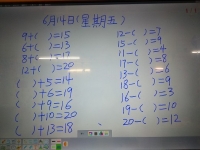 6月14日(星期五)
9+( )=15
6+( )=13
8+( )=17
12+( )=20
( )+5=14
( )+6=19
( )+9=16
( )+10=20
( )+13=18
12-( )=7
15-( )=9
11-( )=4
17-( )=8
13-( )=6
18-( )=9
16-( )=3
19-( )=10
20-( )=12